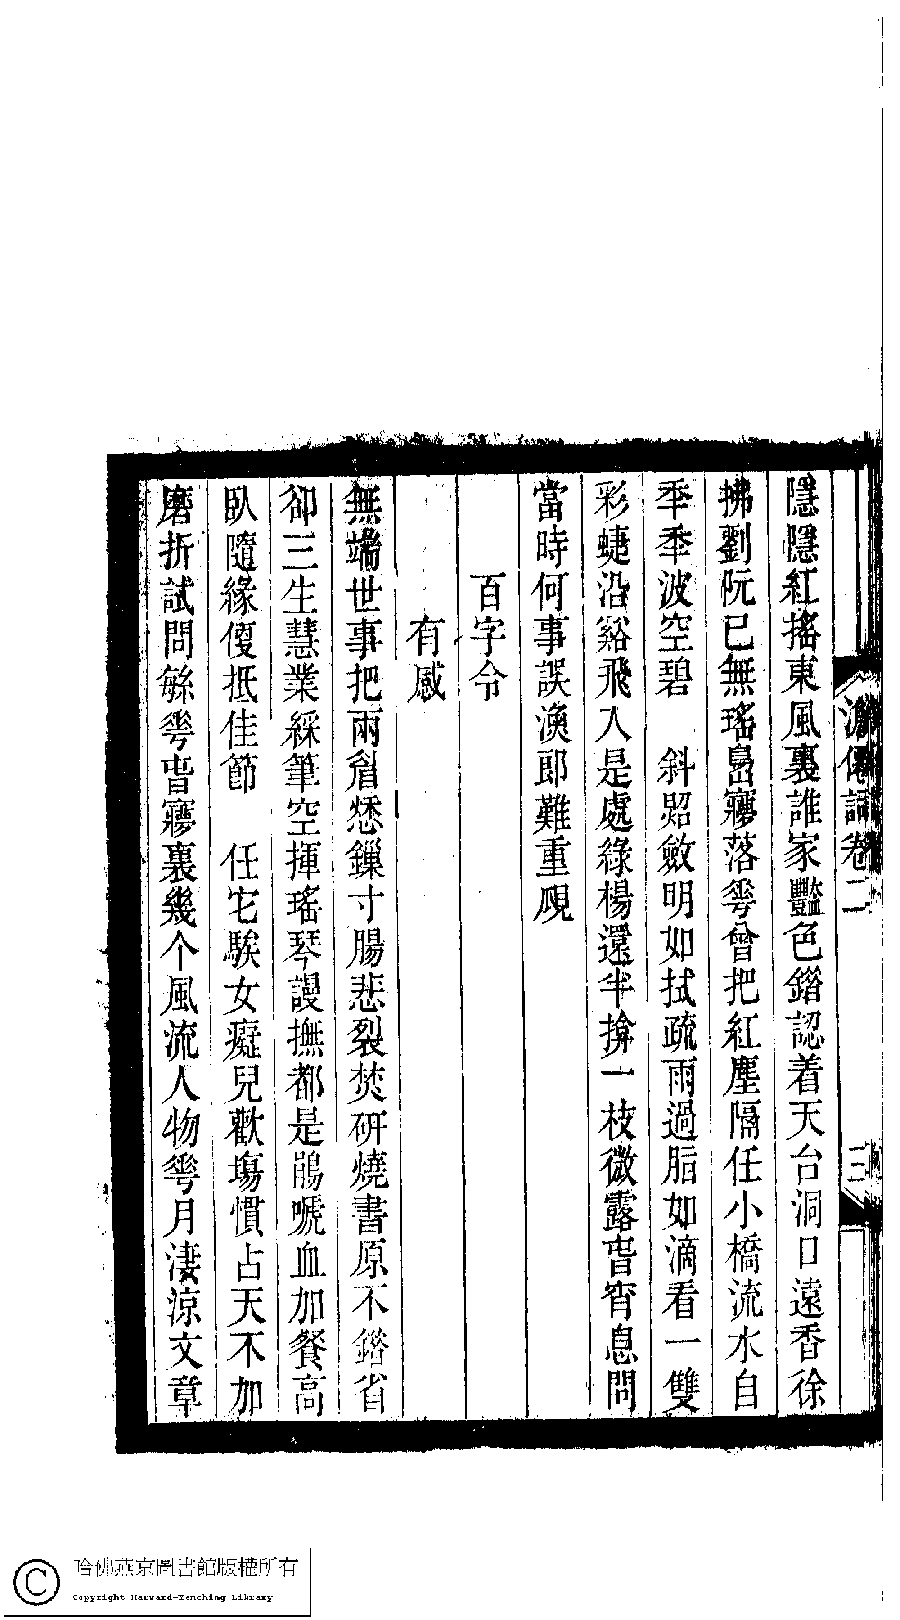 隱隱紅搖東風裏誰家豔色錯認着天台洞口遠香徐
拂劉阮已無瑤島夢落雩曾把紅塵隔任小橋流水自
秊秊波空碧　斜照斂明如拭疏雨過脂如滴看一雙
彩蜨沿谿飛入是處綠楊還半揜一枝微露旾宵息問
當時何事誤漁郎難重覛
百字令
有感
無端世事把兩眉愁鏁寸腸悲裂焚研燒書原不錯省
卻三生慧業綵筆空揮瑤琴謾撫都是鵑嗁血加餐高
臥隨緣便抵佳節　任它騃女癡兒歡場慣占天不加
磨折試問緐雩旾夢裏幾个風流人物雩月淒涼文章
詞卷二
三
哈佛燕京圖書館版權所有
Copyright Harvard-Yenching Library